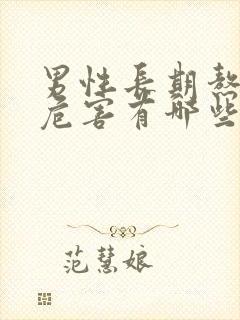 男性長期熬
危害有哪些
范慧娘